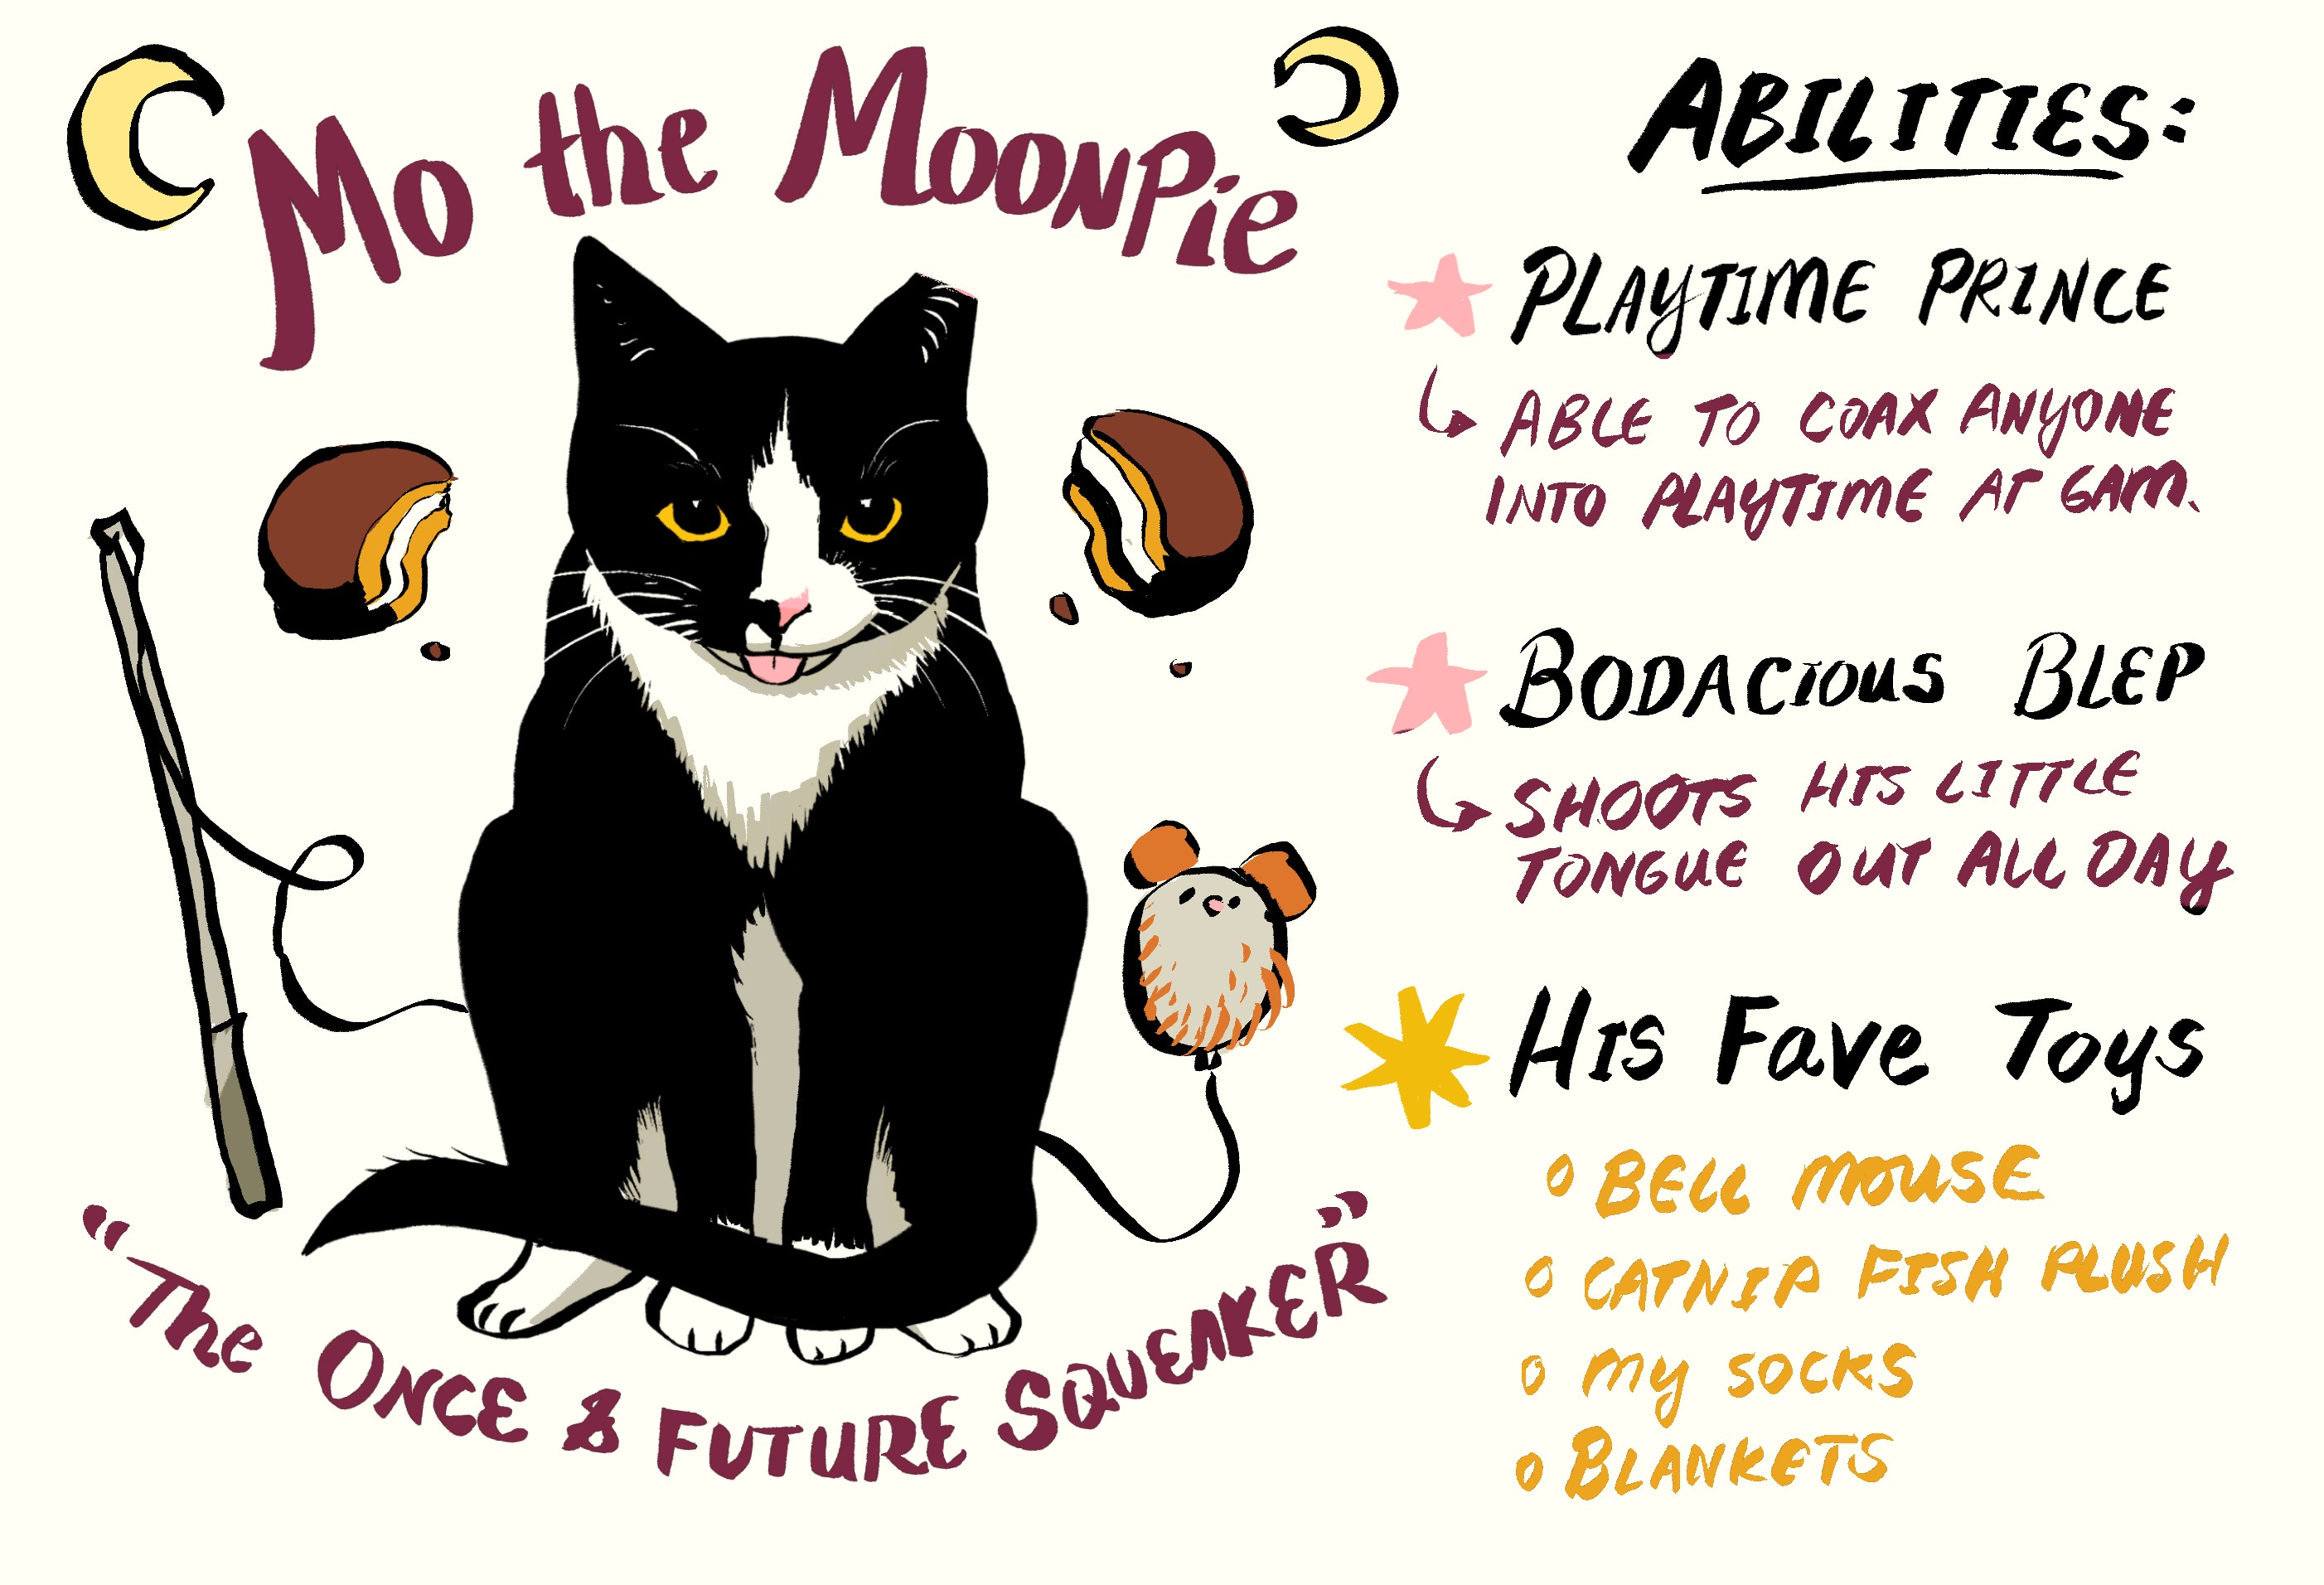 Mo the MoonPie
"The ONCE & FUTURE SQUEAKER"
ABILITIES:
PLAYTIME PRINCE
ABLE TO COAX ANYONE
INTO PLAYTIME AT 6AM.
BODACIOUS BLEP
SHOOTS HIS LITTLE
TONGUE OUT ALL DAY
His Fave Toys
BELL MOUSE
CATNIP FISH PLUSH
MY SOCKS
BLANKETS